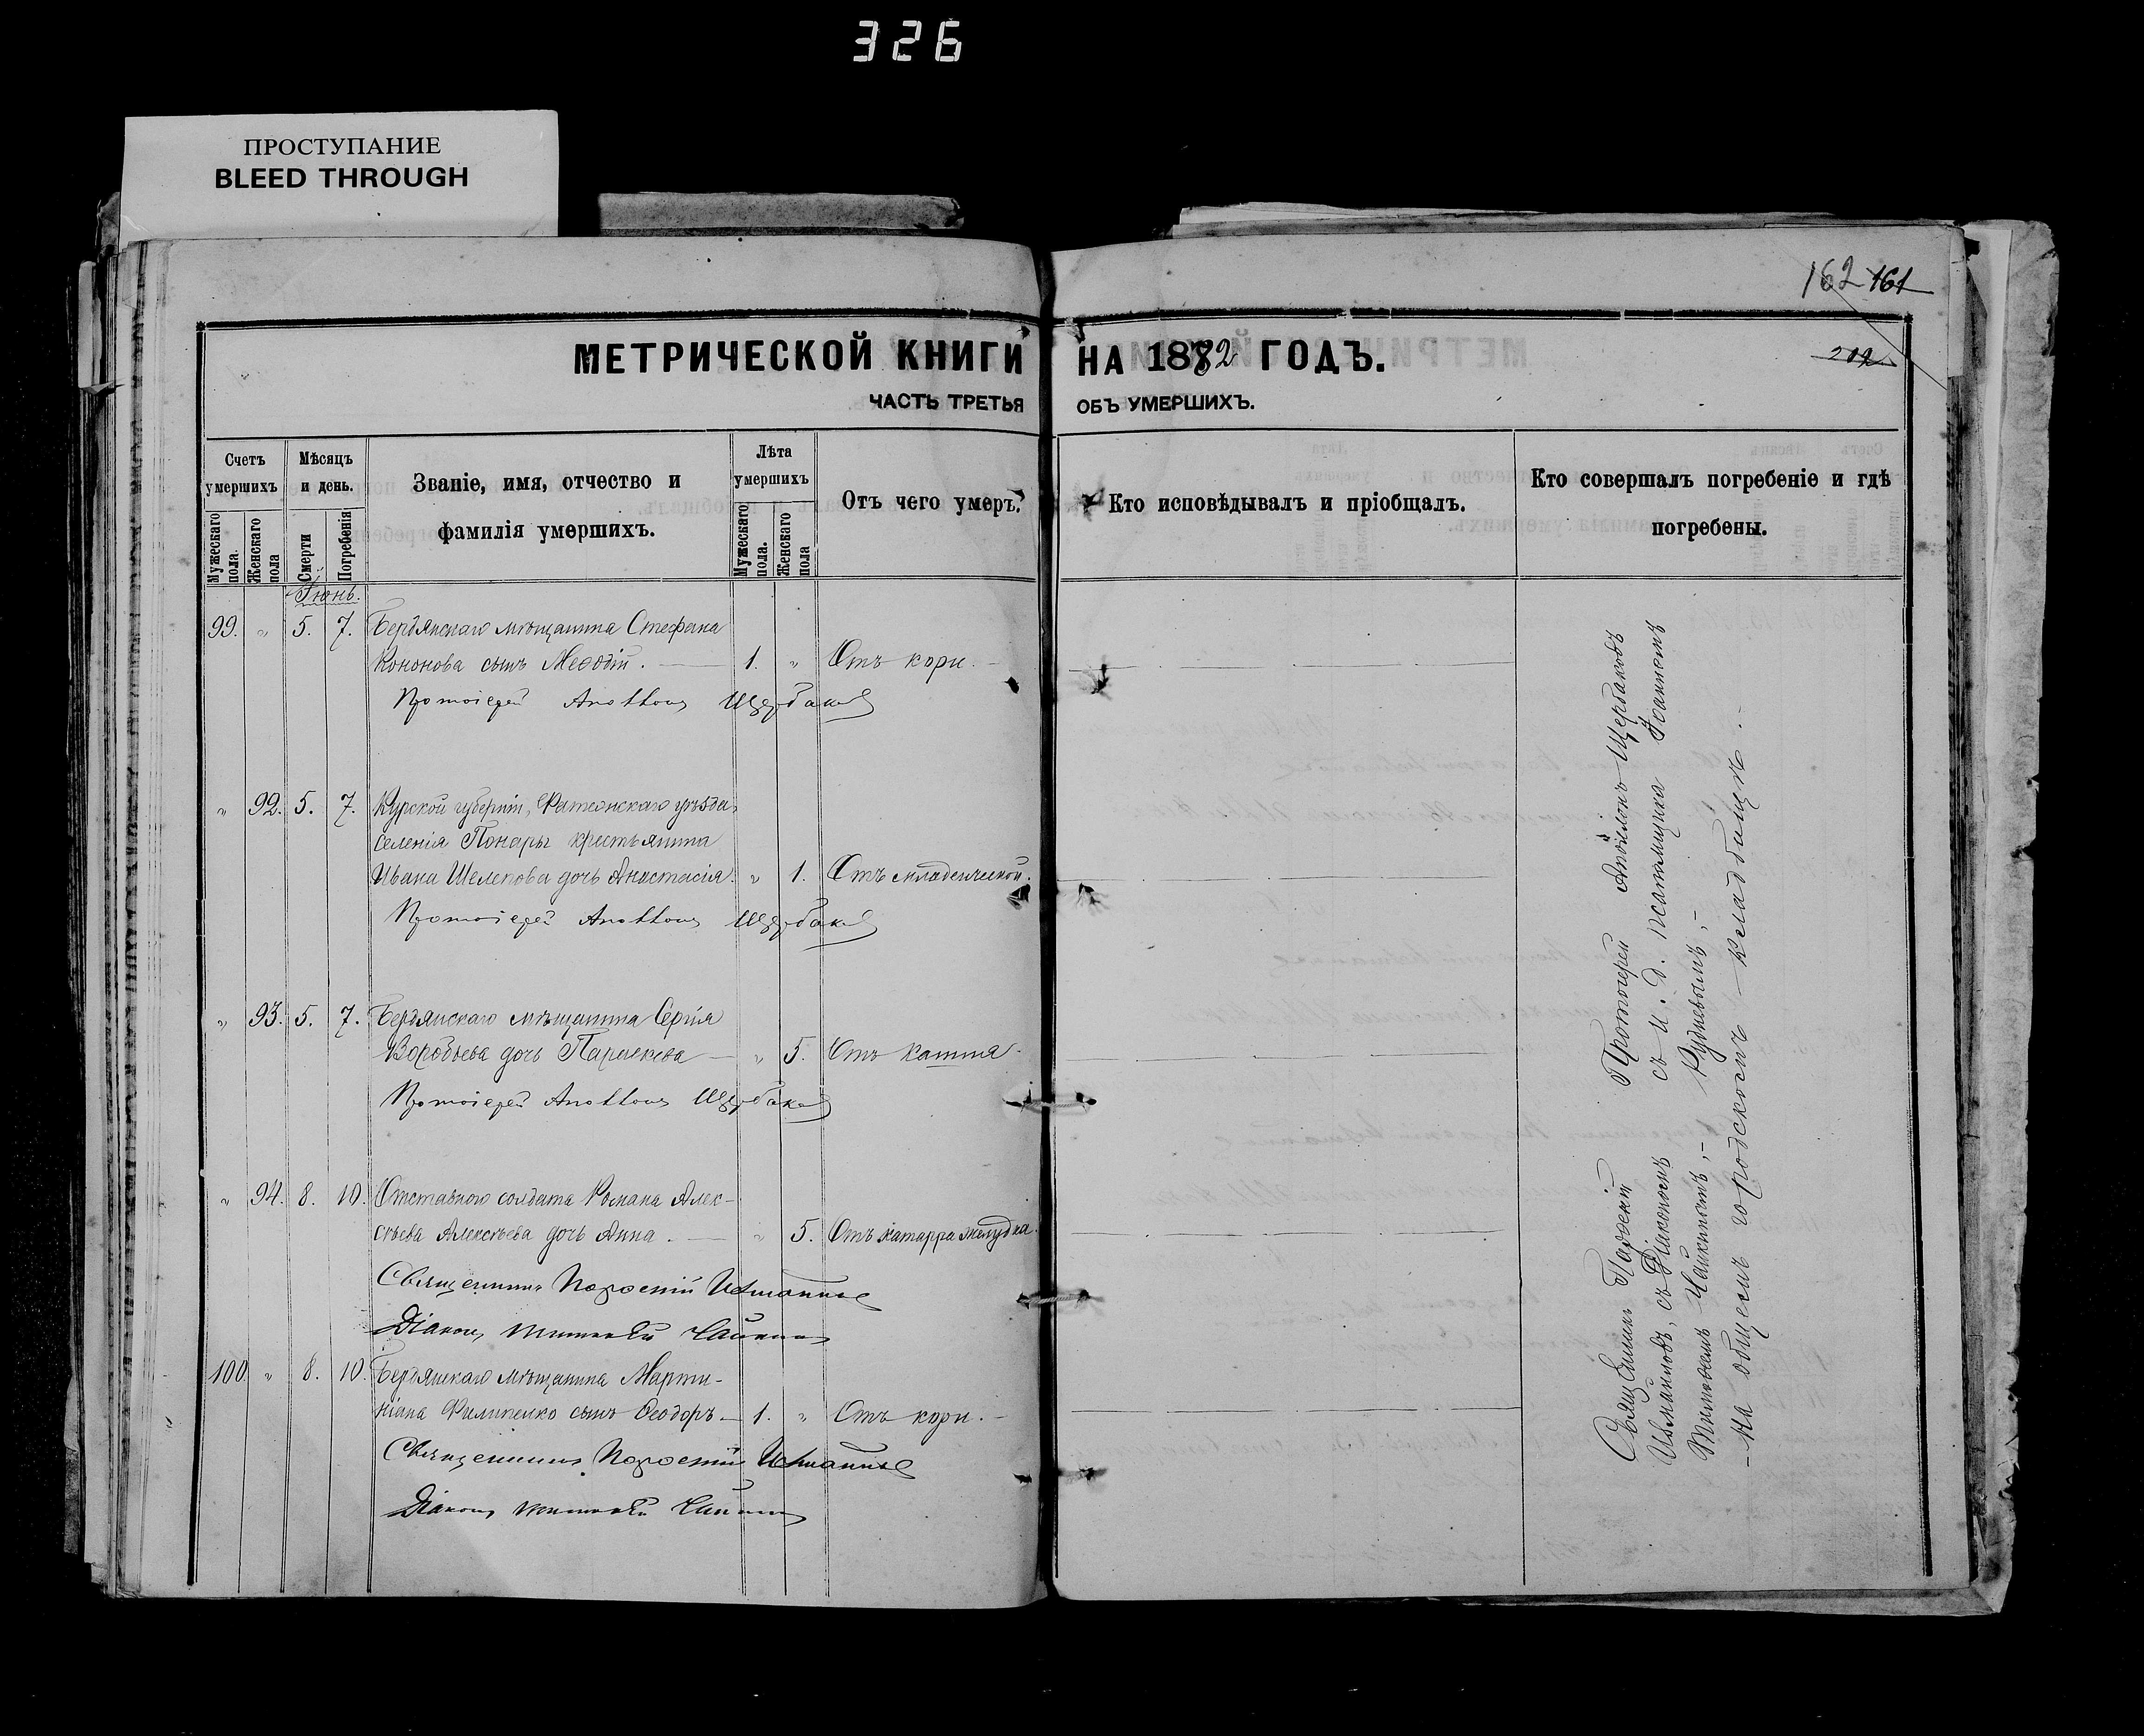 326
ПРОСТУПАНИЕ
BLEED THROUGH
162 161
МЕТРИЧЕСКОЙ КНИГИ НА 1882 ГОДЪ.
ЧАСТЬ ТРЕТЬЯ ОБЪ УМЕРШИХЪ.
Счетъ умершихъ
Мужескаго пола.
Женскаго пола
Мѣсяцъ и день.
Смерти
Погребенія
Званіе, имя, отчество и
фамилія умершихъ.
Лѣта умершихъ
Мужескаго пола.
Женскаго пола
Отъ чего умеръ.
Кто исповѣдывалъ и пріобщалъ.
Кто совершалъ погребеніе и гдѣ
погребены.
Іюнь.
99. „ 5. 7. Бердянскаго мѣщанина Стефана
Кононова сынъ Меѳодій. — 1. „ Отъ кори. —
Протоіерей Аполлонъ Щербаковъ
„ 92. 5. 7. Курской губерніи, Фатежскаго уѣзда,
селенія Понары крестьянина
Ивана Шелепова дочь Анастасія. „ 1. Отъ младенческой.
Протоіерей Аполлонъ Щербаковъ
„ 93. 5. 7. Бердянскаго мѣщанина Сергія
Воробьева дочь Параскева — „ 5. Отъ кашля.
Протоіерей Аполлонъ Щербаковъ
„ 94. 8. 10. Отставного солдата Романа Алек-
сѣева Алексѣева дочь Анна. — „ 5. Отъ катарра желудка.
Священникъ
Діаконъ Тимофей Чайкинъ
100. „ 8. 10. Бердянскаго мѣщанина Марти-
ніана Филипенко сынъ Ѳеодоръ — 1. „ Отъ кори. —
Священникъ
Діаконъ Тимофей Чайкинъ
Протоіерей Аполлонъ Щербаковъ
съ и. д. псаломщика Іоанномъ
Рудневымъ, —
Священникъ
съ Діакономъ
Чайкинымъ, —
— На общемъ городскомъ — кладбищѣ. —